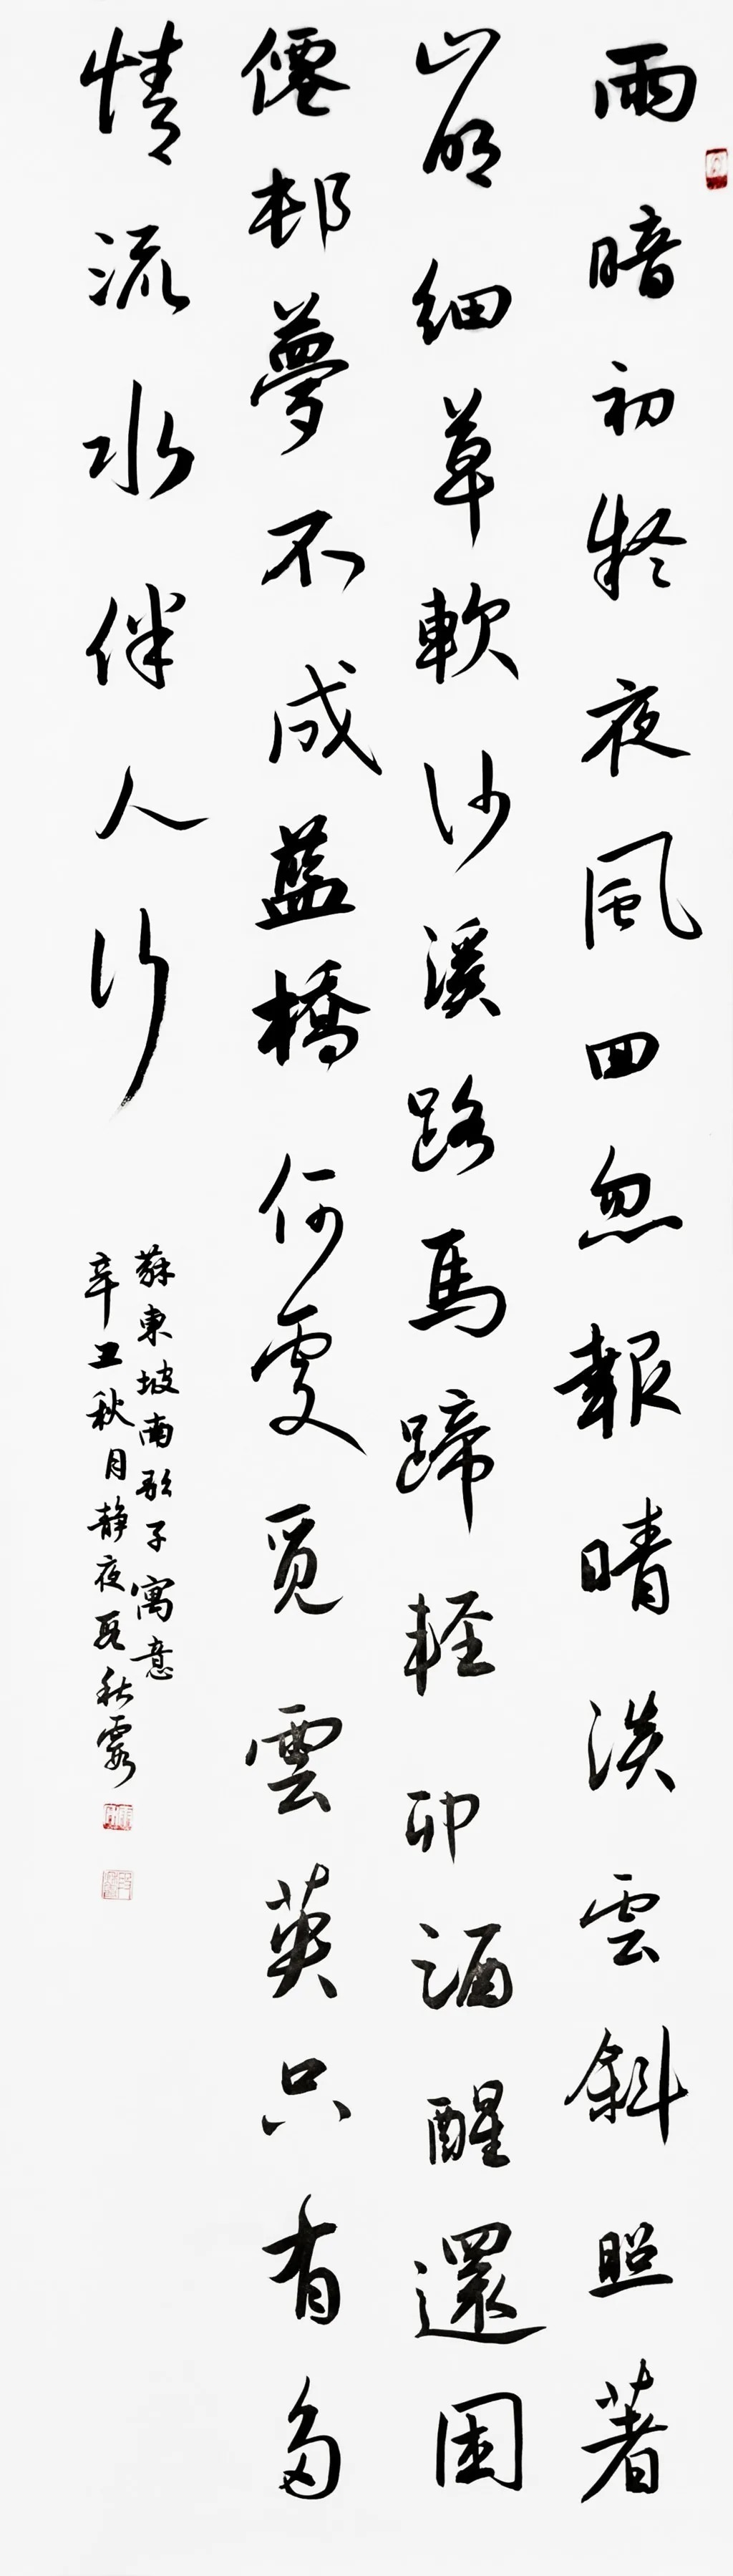 雨暗初疑夜風回忽報晴淡雲斜照著
山明細草軟沙溪路馬蹄輕卯酒醒還困
僊邨夢不成藍橋何處覓雲英只有多
情流水伴人行
蘇東坡南歌子寓意
辛丑秋月静夜秋霞